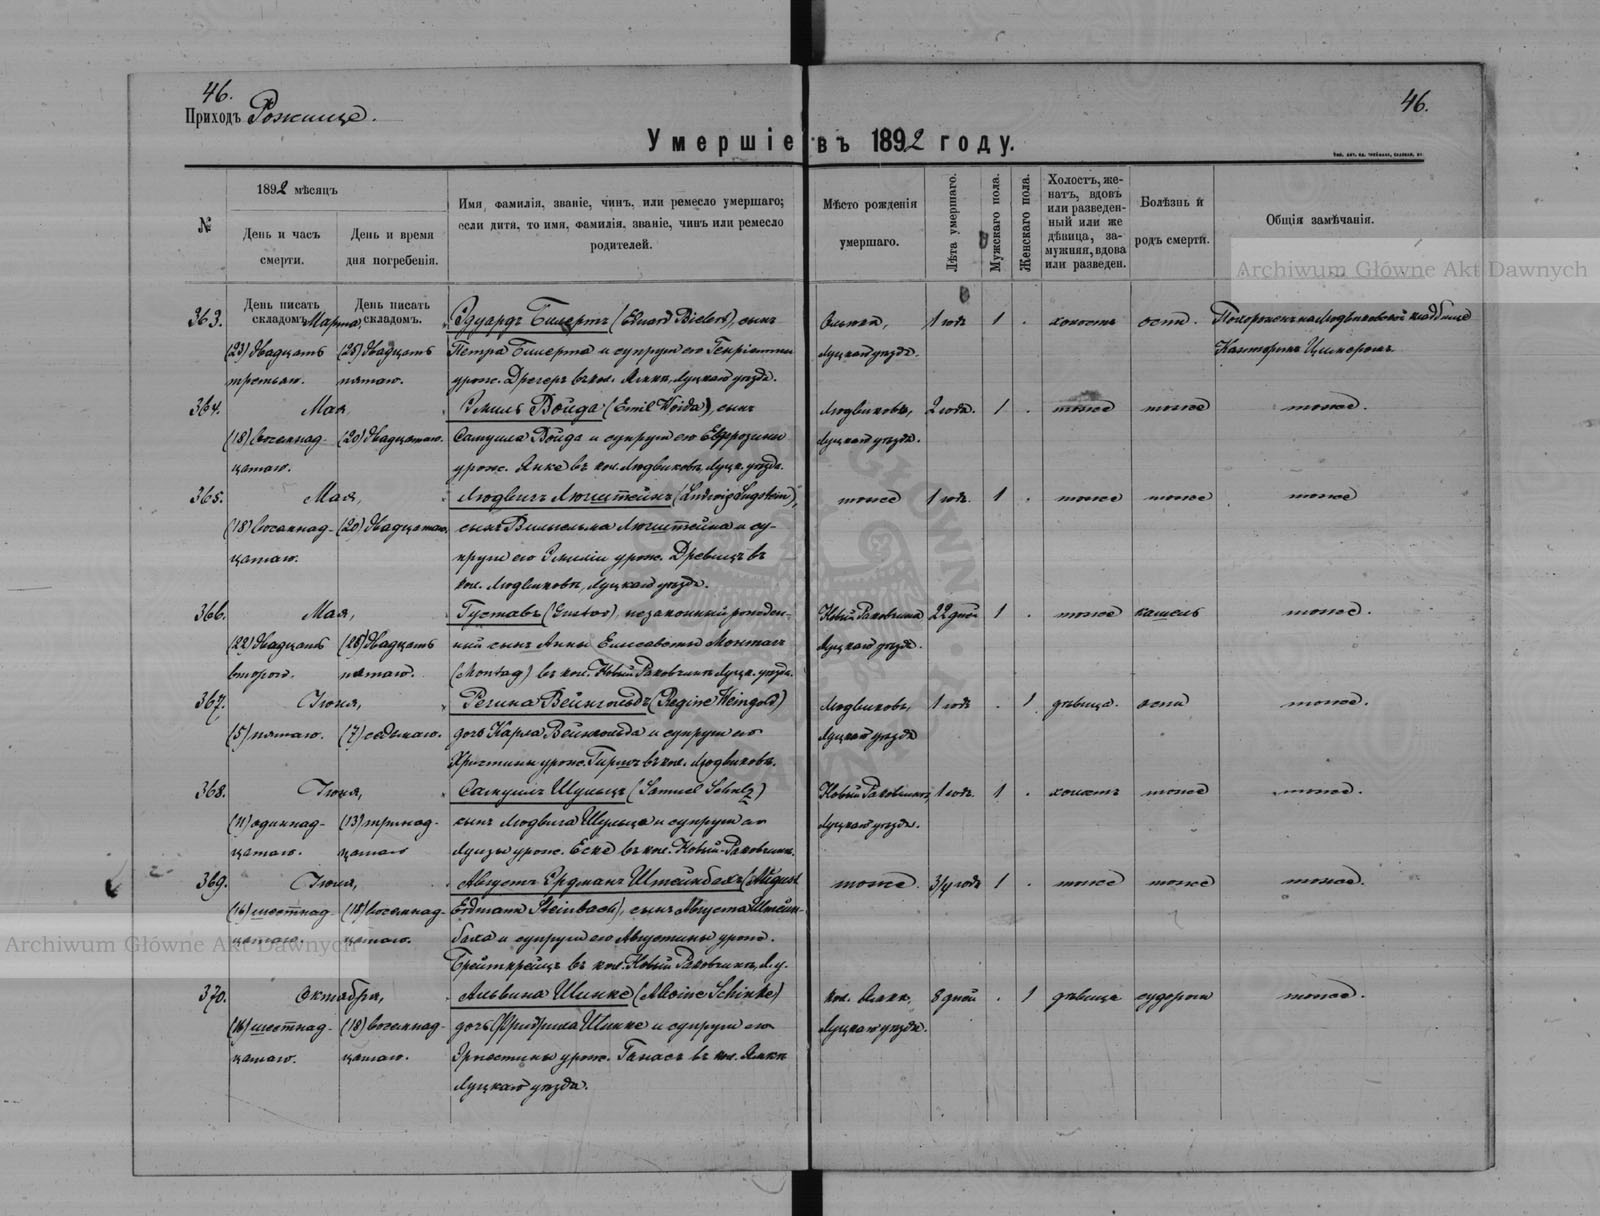 46.
46.
Приходъ Рожище.
Умершіе въ 1892 году.
№
1892 мѣсяцъ
День и часъ смерти.
День и время дня погребенія.
Имя, фамилія, званіе, чинъ, или ремесло умершаго;
если дитя, то имя, фамилія, званіе, чинъ или ремесло
родителей.
Мѣсто рожденія
умершаго.
Лѣта умершаго.
Мужскаго пола.
Женскаго пола.
Холостъ, же-
натъ, вдовъ
или разведен-
ный или же
дѣвица, за-
мужняя, вдова
или разведен.
Болѣзнь и
родъ смерти.
Общія замѣчанія.
Archiwum Główne Akt Dawnych
День писать складомъ.
День писать складомъ.
363. Марта, Эдуардъ Билертъ (Eduard Bielert), сынъ 1 годъ 1 . холостъ оспа.
(23) двадцать (25) двадцать Петра Билерта и супруги его Генріетты Луцкаго уѣзда.
третьяго. пятаго. урож. Дрегеръ въ кол. Луцкаго уѣзда.
364. Мая, Эмиль Войда (Emil Woida), сынъ Людвиковъ, 2 года. 1 . тоже тоже тоже.
(18) восемнад- (20) двадцатаго. Самуила Войда и супруги его Евфрозины Луцкаго уѣзда.
цатаго. урож. Янке въ кол. Людвиковъ, Луцк. уѣзда.
365. Мая, Людвигъ Люгштейнъ (Ludwig Lugstein), тоже 1 годъ. 1 . тоже тоже тоже
(18) восемнад- (20) двадцатаго. сынъ Вильгельма Люгштейна и су-
цатаго. пруги его Эмиліи урож. Древицъ въ
кол. Людвиковъ, Луцкаго уѣзда.
366. Мая, Густавъ (Gustav), незаконный рожден- Новый Раковчизна 22 дней 1 . тоже кашель тоже.
(22) двадцать (25) двадцать ный сынъ Анны Елисаветы Монтагъ Луцкаго уѣзда.
второго. пятаго. (Montag) въ кол. Новый Луцк. уѣзда.
367. Іюня, Регина Вейнгольдъ (Regine Weingold) Людвиковъ, 1 годъ . 1 дѣвица. оспа тоже.
(5) пятаго. (7) седьмаго. дочь Карла Вейнгольда и супруги его Луцкаго уѣзда
Христины урож. Гиршъ въ кол. Людвиковъ.
368. Іюня, Самуилъ Шульцъ (Samuel Schulz) 1 годъ. 1 . холостъ тоже тоже.
(11) одиннад- (13) тринад- сынъ Людвига Шульца и супруги его Луцкаго уѣзда.
цатаго. цатаго Луизы урож. Еске въ кол. Новый
369. Іюня, Августъ Эрдманъ Штейнбахъ (August тоже. 3/4 года 1 . тоже тоже тоже.
(16) шестнад- (18) восемнад- Erdmann Steinbach), сынъ Августа Штейн-
цатаго. цатаго. баха и супруги его Августины урож.
Брейткрейцъ въ кол. Новый Л. у.
Archiwum Główne Akt Dawnych
370. Октября, Альвина Шинке (Alwine Schinke) кол. 8 дней . 1 дѣвица судороги тоже.
(16) шестнад- (18) восемнад- дочь Фридриха Шинке и супруги его Луцкаго уѣзда.
цатаго. цатаго. Эрнестины урож. Ганасъ въ кол.
Луцкаго уѣзда.